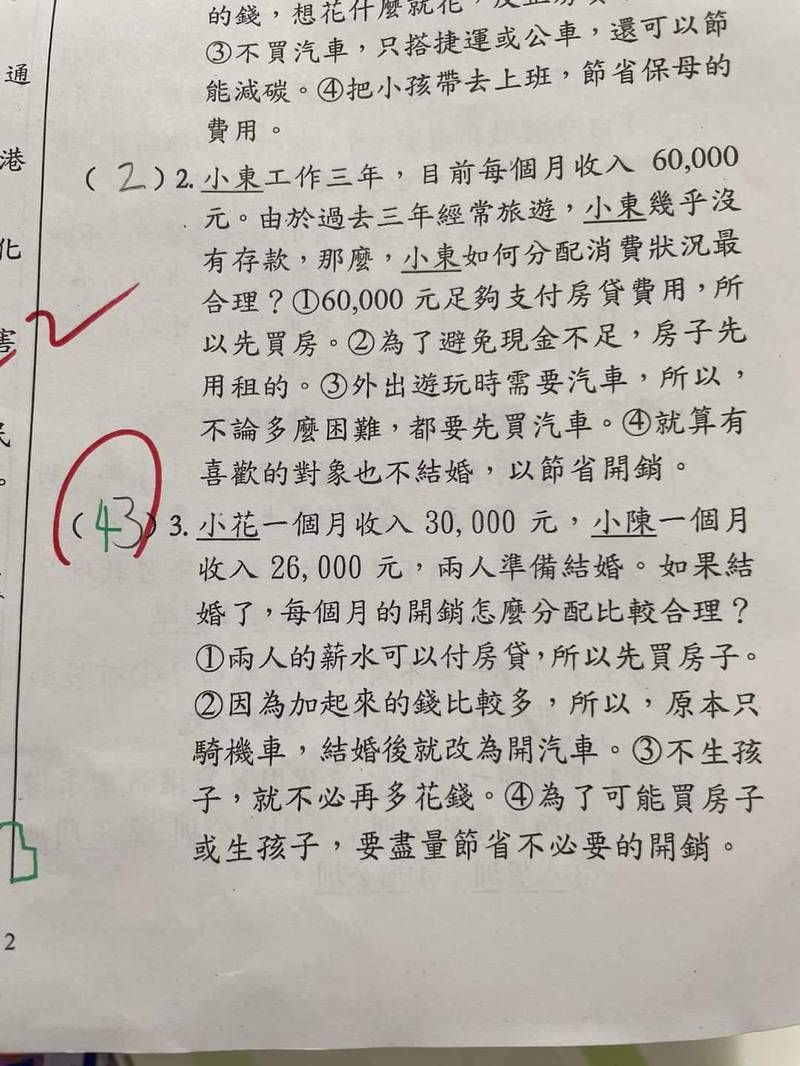 的錢，想花什麼就花，反正
③不買汽車，只搭捷運或公車，還可以節
能減碳。④把小孩帶去上班，節省保母的
費用。
(2)2.小東工作三年，目前每個月收入 60,000
元。由於過去三年經常旅遊，小東幾乎沒
有存款，那麼，小東如何分配消費狀況最
合理？①60,000 元足夠支付房貸費用，所
以先買房。②為了避免現金不足，房子先
用租的。③外出遊玩時需要汽車，所以，
不論多麼困難，都要先買汽車。④就算有
喜歡的對象也不結婚，以節省開銷。
(43)3.小花一個月收入 30,000 元，小陳一個月
收入 26,000 元，兩人準備結婚。如果結
婚了，每個月的開銷怎麼分配比較合理？
①兩人的薪水可以付房貸，所以先買房子。
②因為加起來的錢比較多，所以，原本只
騎機車，結婚後就改為開汽車。③不生孩
子，就不必再多花錢。④為了可能買房子
或生孩子，要盡量節省不必要的開銷。
通
港
化
害
民
。
2